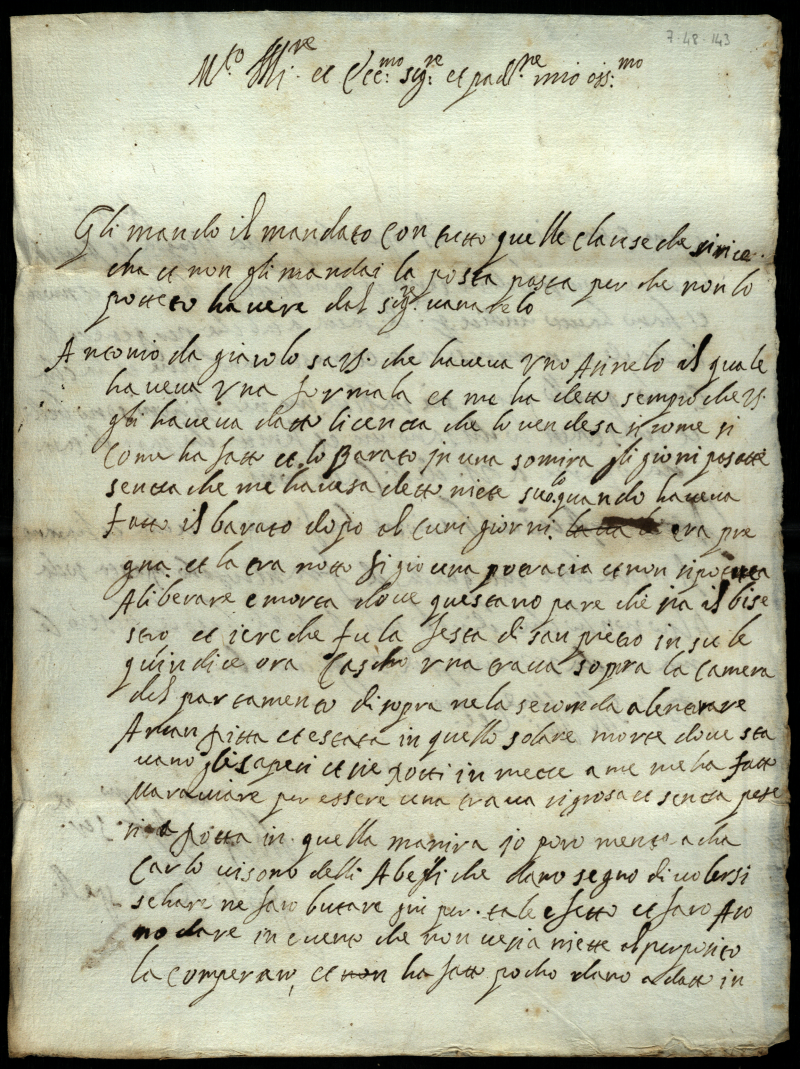 7-48-143
M.to Ill.re et Ecc.mo sig.re et pad.ne mio oss.mo
Gli mando il mandato con tutto quelle clause che si rice
cha et non gli mandai la posta pasta per che non lo
potteto havere dal sig.re vanarelo
Antonio da giavolo sa VS. che haveva uno Asinelo il quale
haveva una et me ha detto sempre che VS.
gli haveva datto licentia che lo vendesa si come si
come ha fatto et lo Barato in una somira gli giorni pasatti
sentta che me havesa detto niete solo quando haveva
fatto il barato dopio al cuni giorni era pre
gna et la tra notto si gio una et non si potutta
A liberare e morta dove questano pare che sia il bise
stro et iere che fu la festa di san pietro in su le
quindice ora Cascho una trava sopra la camera
del partamento di sopra nela seconda alentrare
et estata in quello solare morte dove sta
vano gli et sie rotti in mezze a me me ha fatto
Maraviare per essere una trava sigrosa et sentta pese
si rotta in quella manira io poro mento a cha
Carlo visono delli Abetti che dano segno di volersi
schare ne faro butare giu per tale efetto et faro
no dare in evento che non venia niette al perposito
la comperaro, et non ha fatt pocho dano a datt in